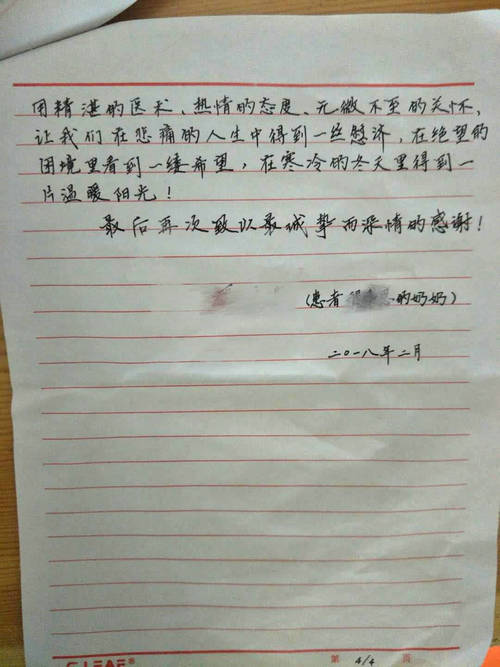 用精湛的医术、热情的态度、无微不至的关怀,
让我们在悲痛的人生中得到一丝慰济,在绝望的
困境里看到一缕希望,在寒冷的冬天里得到一
片温暖阳光!
最后再次致以最诚挚而深情的感谢!
(患者 的奶奶)
二〇一八年二月
LEAF®
第 4/4 页